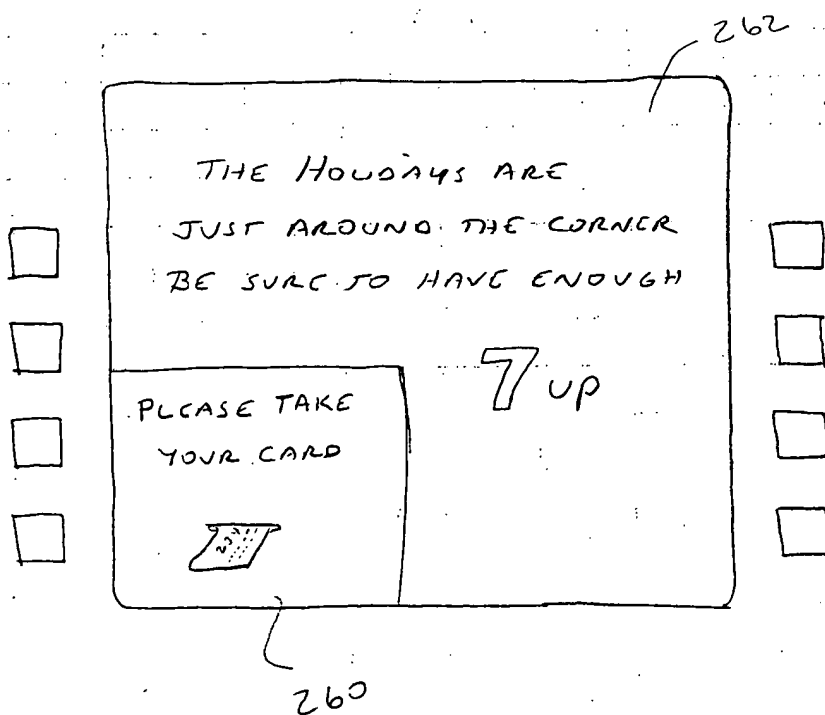 262
THE HOLIDAYS ARE
JUST AROUND THE CORNER
BE SURE TO HAVE ENOUGH
7 UP
PLEASE TAKE
YOUR CARD
234
260